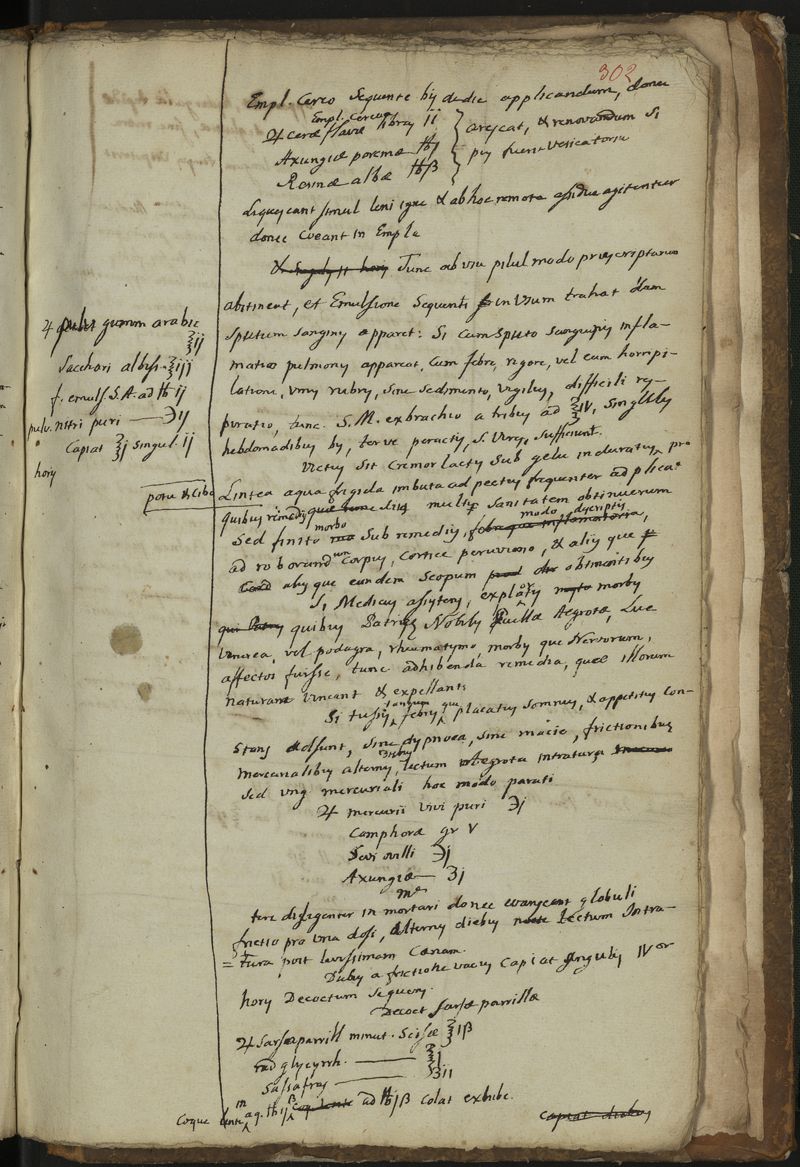 302
Empl. Cereo Sequente applicandum, donec
Empl. Cereum
♃ cerae flavae libras ii
Axungiae porcinae ℔j
Resinae albae ℔ß
arescat, & renovandum si
prius fuerit vesicatoria
Liquescant simul leni igne & ab hoc remota assidue agitentur
donec coeant in Empla
Tunc ab usu pilul modo praescriptarum
abstineat, et Emulsione Sequenti in Usum trahat dum
Sputum sanguinis apparet: Si cum sputo sanguinis infla-
matio pulmonis appareat, cum febre, rigore, vel cum horripi-
latione, urinis rubris, sine sedimento, vigiliis, difficili res-
piratio, tunc. S. M. ex brachio a tribus ad ℥IV, singulis
hebdomadibus bis, terve peractis, S. Vires sufficiunt.
♃ pulv gumm arabic ℥ij
Sacchari albiss. ℥iij
f. emuls S.A. ad ℔ ij
pulv. nitri puri — ℈ij
Capiat ℥j singul. ij
horis
Victus sit Cremor lactis sub gelu induratus, pro
potu & cibo
Lintea aqua frigida imbuta ad pectus frequenter adplicat
quibus remediis multi Sanitatem obtinuerunt
Sed finito morbo Sub remediis, modo descriptis
ad roborandum Corpus, Cortice peruviano, & aliis que
abs que eundem Scopum obtinentibus
Si, Medicus assistens, exploret morbis
quibus Patrisque Nobilis Puellae Aegrotae, Lue
Venerea, vel podagra, rheumatismo, morbis que Nervorum,
affectos fuisse, tunc adhibenda remedia, quae illorum
naturam vincant & expellant
Si tussis tantum, febris que placatus somnus, & appetitus con-
stans adsunt, sine dypnoea, sine macie, frictionibus
mercurialibus alternis diebus, lectum Aegrota intratura
sed ung mercuriali hoc modo parati
♃ mercurii vivi puri ℈j
Camphorae gr V
Sevi ovilli ℈j
Axungiae — ʒj
me
tere diligenter in mortari donec evanescant globuli
frictio pro una dosi, Alternis diebus Lectum Intra-
= tura post levissimam Caenam.
Diebus a frictione vacuis Capiat singulis IV or
horis Decoctum Sequens.
Decoct Sarsae parrillae
♃ Sarsaeparrill minut. Scissae ℥iß
rad glycyrrh. — ℥j
Sassafras — ʒii
Coque lente in aq. ℔ ijß ad ℔jß Colat exhibe.